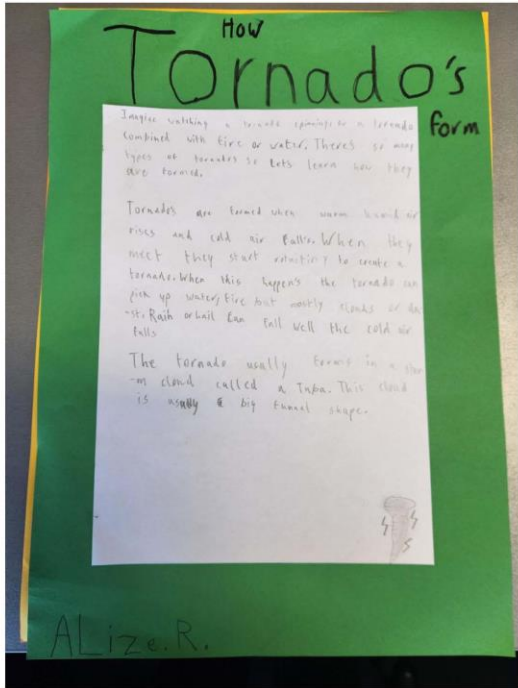 How
Tornado's
form
Imagine watching a tornado spinning or a tornado
combined with fire or water. There's so many
types of tornados so lets learn how they
are formed.
Tornados are formed when warm humid air
rises and cold air falls. When they
meet they start rotating to create a
tornado. When this happens the tornado can
pick up water, fire but mostly clouds or du
-st. Rain or hail can fall well the cold air
falls
The tornado usually forms in a stor
-m cloud called a Tuba. This cloud
is usually a big funnel shape.
ALize.R.